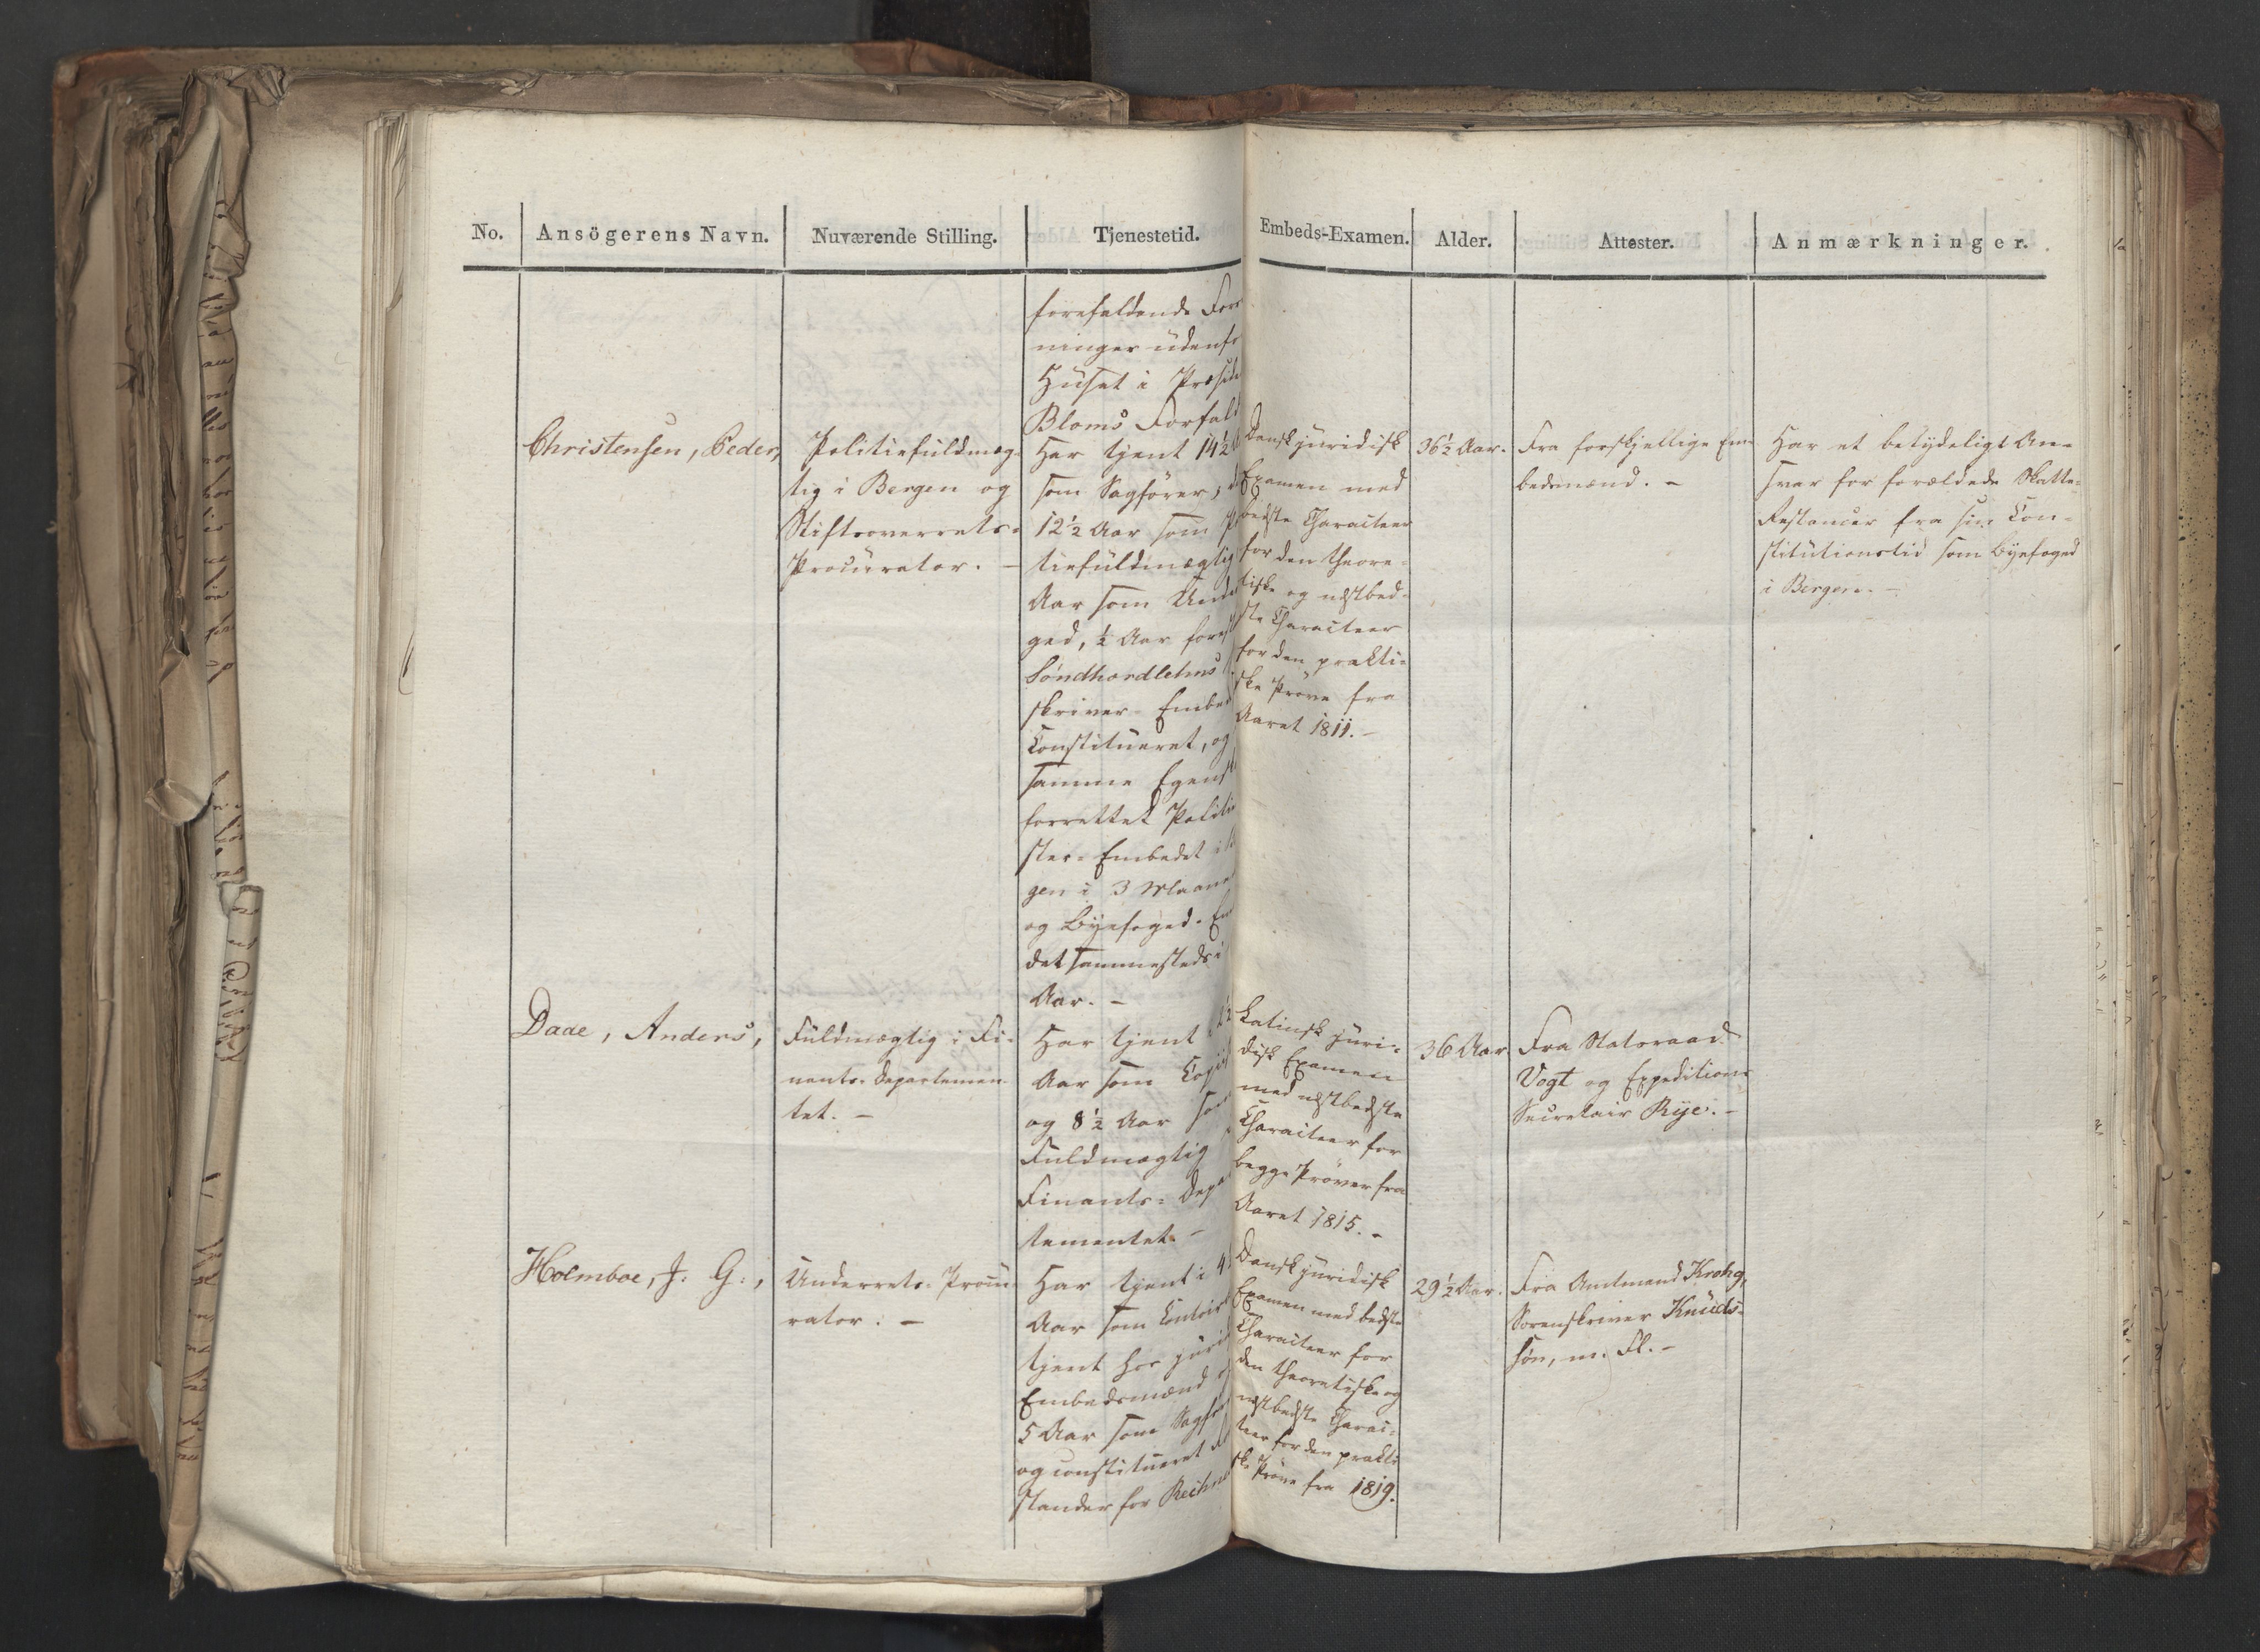 No.
Ansögerens Navn.
Nuværende Stilling.
Tjenestetid.
Embeds-Examen.
Alder.
Attester.
Anmærkninger.
forefaldende For
ninger udenfo
Huset i Præside
Bloms Forfald
Christensen, Peder,
Politiefuldmæg-
tig i Bergen og
Stiftsoverrets-
Procurator. -
Har tjent 14½
som Sagfører,
12½ Aar som P
tiefuldmægtig
Aar som Und
ged, ½ Aar forest
Söndhordlehns
skriver-Embed
Constitueret, og
samme Egensk
forrettet Politi
ster-Embedet i
gen i 3 Maane
og Byefoged-Em
det sammesteds i
Aar. -
Dansk juridisk
Examen med
bedste Characteer
for den theore-
tiske og næstbed-
ste Characteer
for den prakti-
ske Prøve fra
Aaret 1811. -
36½ Aar.
Fra forskjellige Em-
bedsmænd. -
Har et betydeligt An-
svar for forældede Skatte-
Restancer fra sin Con-
stitutionstid som Byefoged
i Bergen. -
Daae, Anders,
Fuldmægtig i Fi-
nants-Departemen-
tet. -
Har tjent
Aar som Copiist
og 8½ Aar som
Fuldmægtig
Finants-Depa
tementet. -
Latinsk juri-
disk Examen
med næstbedste
Characteer for
begge Prøver fra
Aaret 1815. -
36 Aar
Fra Statsraad
Vogt og Expeditions-
Secretair Rye. -
Holmboe, J. G.,
Underrets-Procu-
rator. -
Har tjent i 4
Aar som Contoir
tjent hos juri
Embedsmænd
5 Aar som Sagfør
og constitueret
stander for Rechn
Dansk juridisk
Examen med bedste
Characteer for
den theoretiske og
næstbedste Charac-
teer for den prakti-
ske Prøve fra 1819.
29½ Aar.
Fra Amtmand Krohg,
Sorenskriver Knuds-
søn, m. Fl. -